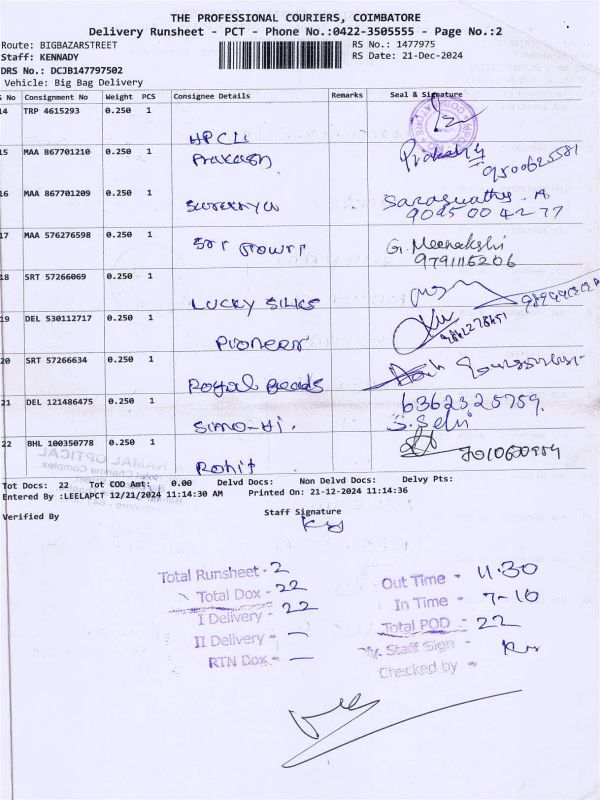 THE PROFESSIONAL COURIERS, COIMBATORE
Delivery Runsheet - PCT - Phone No.:0422-3505555 - Page No.:2
Route: BIGBAZARSTREET
RS No.: 1477975
Staff: KENNADY
RS Date: 21-Dec-2024
DRS No.: DCJB147797502
Vehicle: Big Bag Delivery
S No Consignment No Weight PCS Consignee Details Remarks Seal & Signature
14 TRP 4615293 0.250 1
HPCL
15 MAA 867701210 0.250 1 Prakash Prakash 9500625581
16 MAA 867701209 0.250 1
Saraswathy. A
9095004277
17 MAA 576276598 0.250 1 Sri Gowri G. Meenakshi
9791116206
18 SRT 57266069 0.250 1
LUCKY SILKS
19 DEL 530112717 0.250 1
Pioneer
20 SRT 57266634 0.250 1
Royal Beads
21 DEL 121486475 0.250 1 6362325759.
Simo-Hi. S. Selvi
22 BHL 100350778 0.250 1
Rohit
KAMAL OPTICAL
Tot Docs: 22 Tot COD Amt: 0.00 Delvd Docs: Non Delvd Docs: Delvy Pts:
Entered By :LEELAPCT 12/21/2024 11:14:30 AM Printed On: 21-12-2024 11:14:36
Verified By Staff Signature
Total Runsheet - 2
Total Dox - 22
I Delivery - 22
II Delivery - —
RTN Dox - —
Out Time - 11.30
In Time - 7-10
Total POD - 22
Staff Sign -
Checked by -